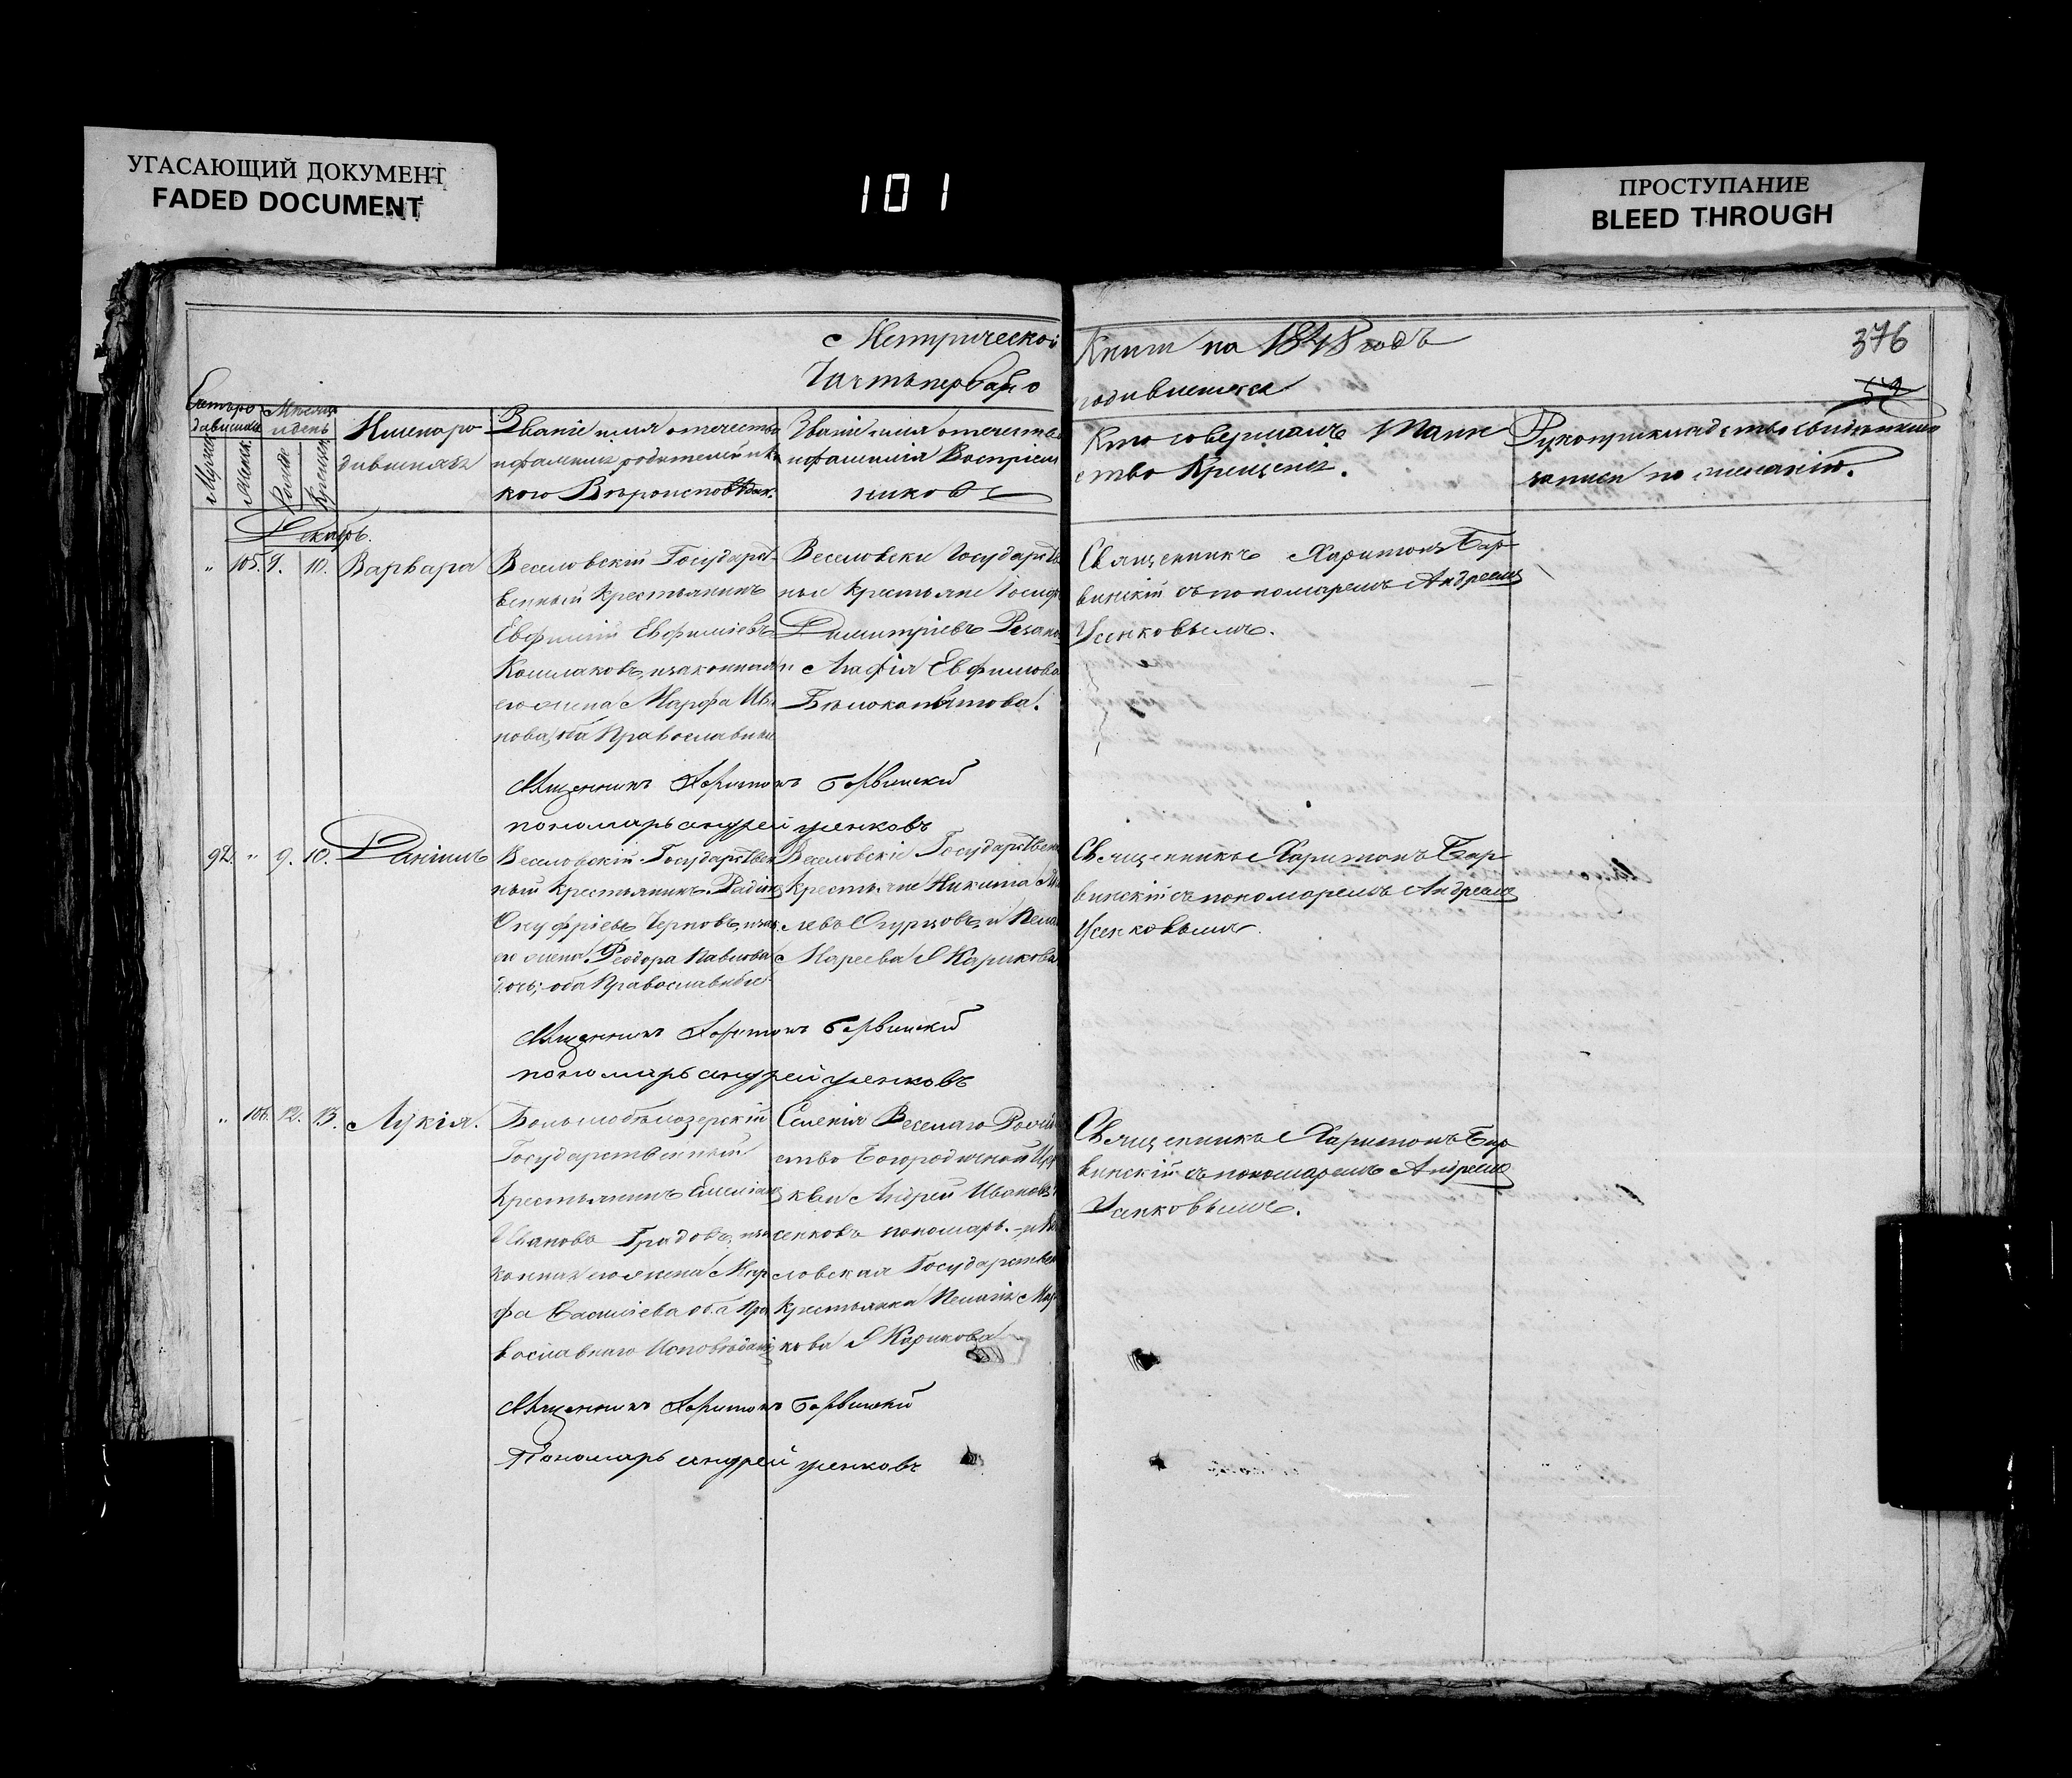 УГАСАЮЩИЙ ДОКУМЕНТ
FADED DOCUMENT
101
ПРОСТУПАНИЕ
BLEED THROUGH
Метрической
Книги на 1848 годъ
376
Часть первая о
родившихся
52
Счетъ ро
дившихся
Мѣсяцъ
и день
Мужеск
Женск.
Рожде
Крещен
Имена ро
дившихся
Званіе имя отечество
и фамилия родителей и ка
кого Вѣроисповѣдан.
Званіе имя отечество
и фамилія Воспріем
никовъ
Кто совершалъ Таин
ство Крещенія.
Рукоприкладство свидѣтелей
записи по желанію.
Декабрь.
„ 105. 9. 10. Варвара
Веселовскій Государст-
венный Крестьянинъ
Евфимій Евфиміевъ
Кошлаковъ, и законная
его жена Марфа Ива
нова, оба Православные
Веселовски Государствен
ные Крестьяне Іосифъ
Димитріевъ Резано
и Агафія Евфимова
Бѣлокопытова.
Священникъ Харитонъ Бар
винскій съ пономаремъ Андреемъ
Усенковымъ.
Священникъ Харитонъ Барвинскій
пономарь андрей усенковъ
92. „ 9. 10. Даніилъ
Веселовскій Государствен
ный Крестьянинъ Радіонъ
Онуфріевъ Черновъ, и зак.
его жена Ѳеодора Павлова
дочь; оба Православные
Веселовскіе Государствен
Крестьяне Никита
левъ Огурцовъ, и Пела
Мареева Карикова
Священникъ Харитонъ Бар
винскій съ пономаремъ Андреемъ
Усенковымъ.
Священникъ Харитонъ Барвинскій
пономарь андрей усенковъ
„ 106. 12. 13. Лукія.
Большобѣлозерскій
Государственный
Крестьянинъ Емеліанъ
Ивановъ Градовъ, и за
конная его жена Мар
фа Васильева оба Пра
вославнаго Исповѣданія
Селенія Веселаго Рожде
ство Богородичной Цер
кви Андрей Ивановъ
сенковъ пономарь. и Ве
словская Государствен
Крестьянка Пелагія Мар
кова Карикова
Священникъ Харитонъ Бар
винскій съ пономаремъ Андреемъ
Усенковымъ.
Священникъ Харитонъ Барвинскій
Пономарь андрей усенковъ